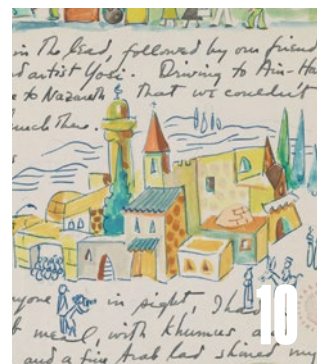 in the lead, followed by our friend
d artist Yosi. Driving to Ain-Ha
e to Nazareth, that we couldn't
uch there.
s
yone in sight, I ha
meal, with Khumus a
and a fine Arab lad shined my
10